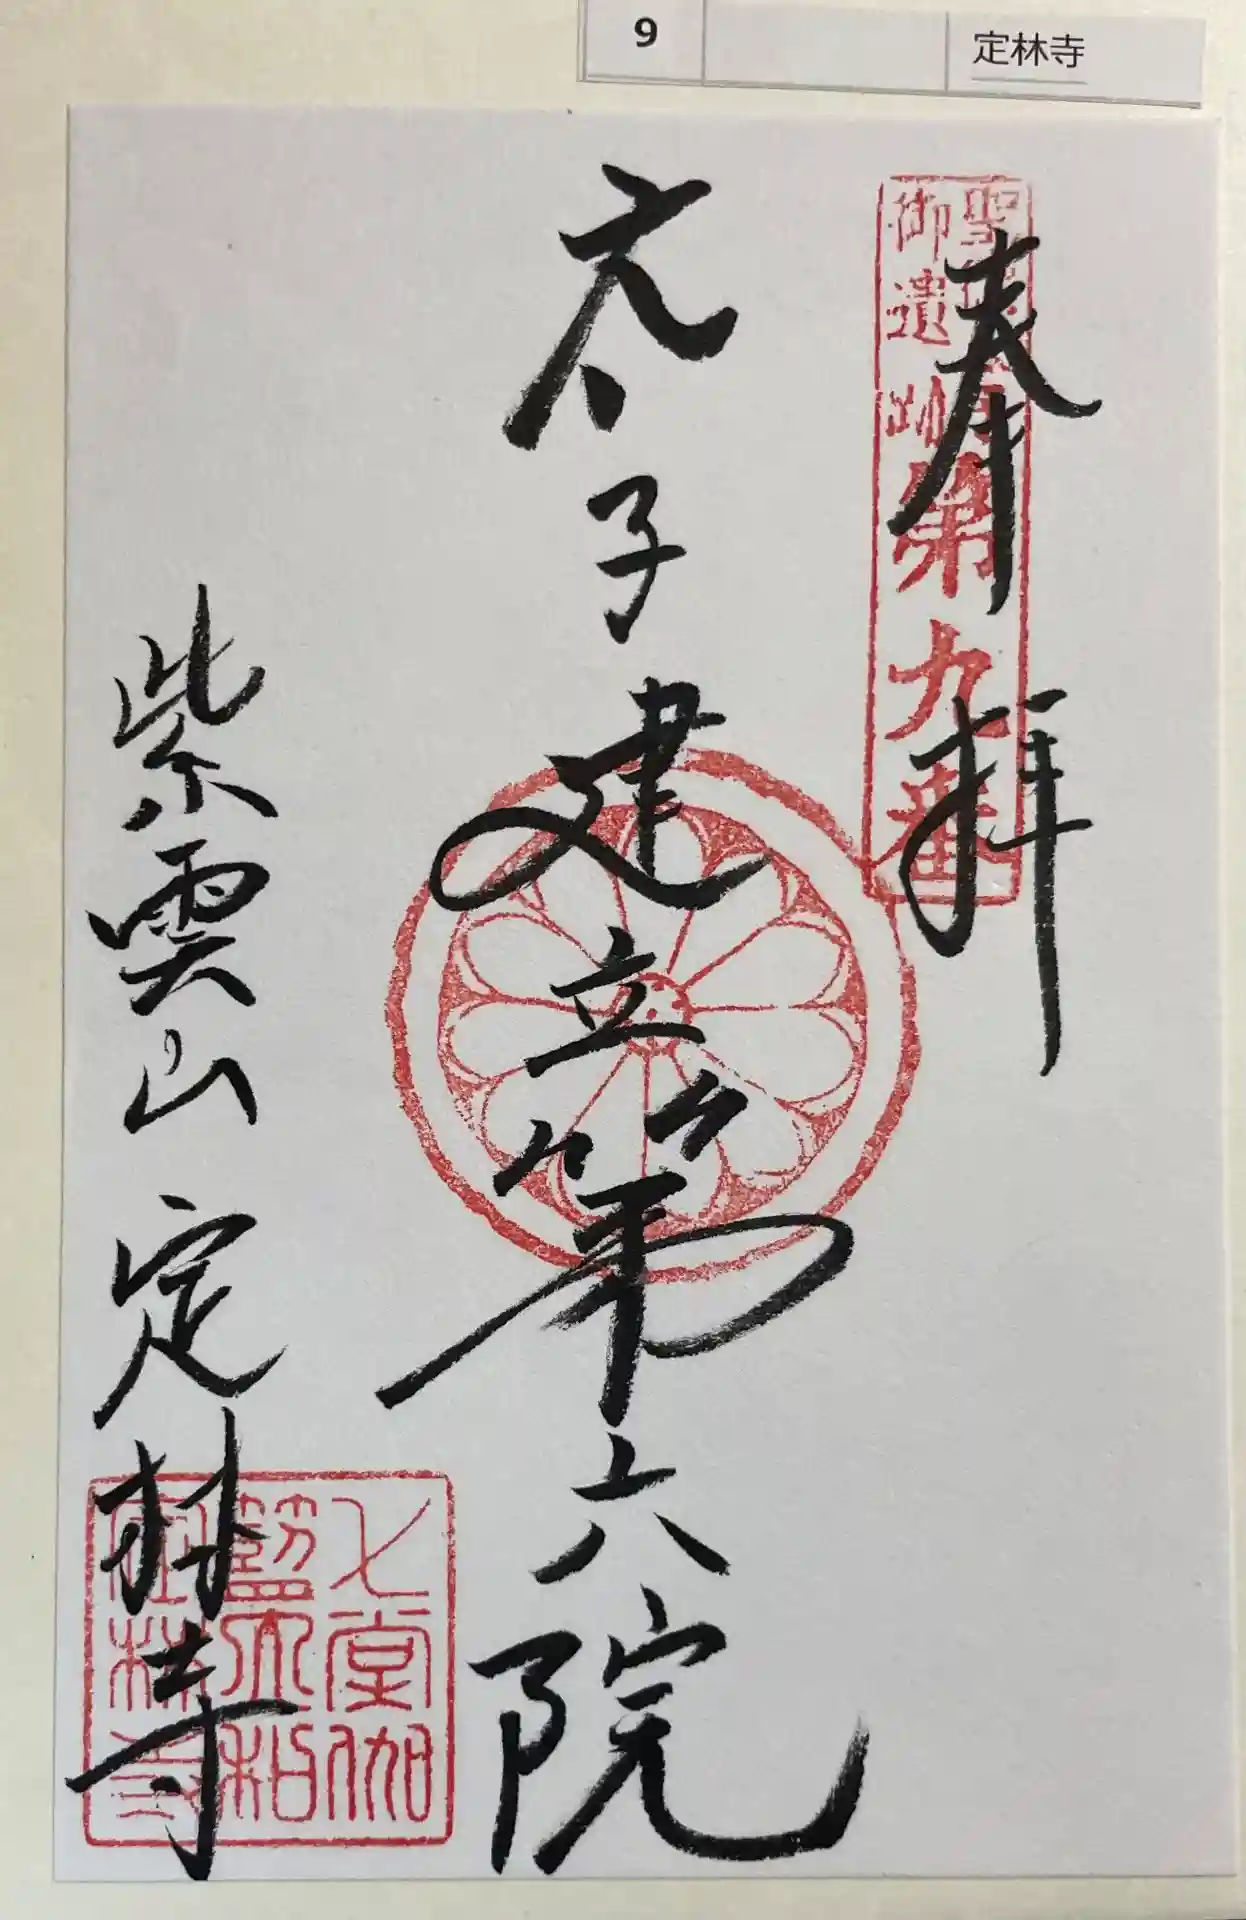 9
定林寺
奉拝
聖徳太子
御遺跡第九番
太子建立第六院
紫雲山 定林寺
七堂伽
藍大和
定林寺